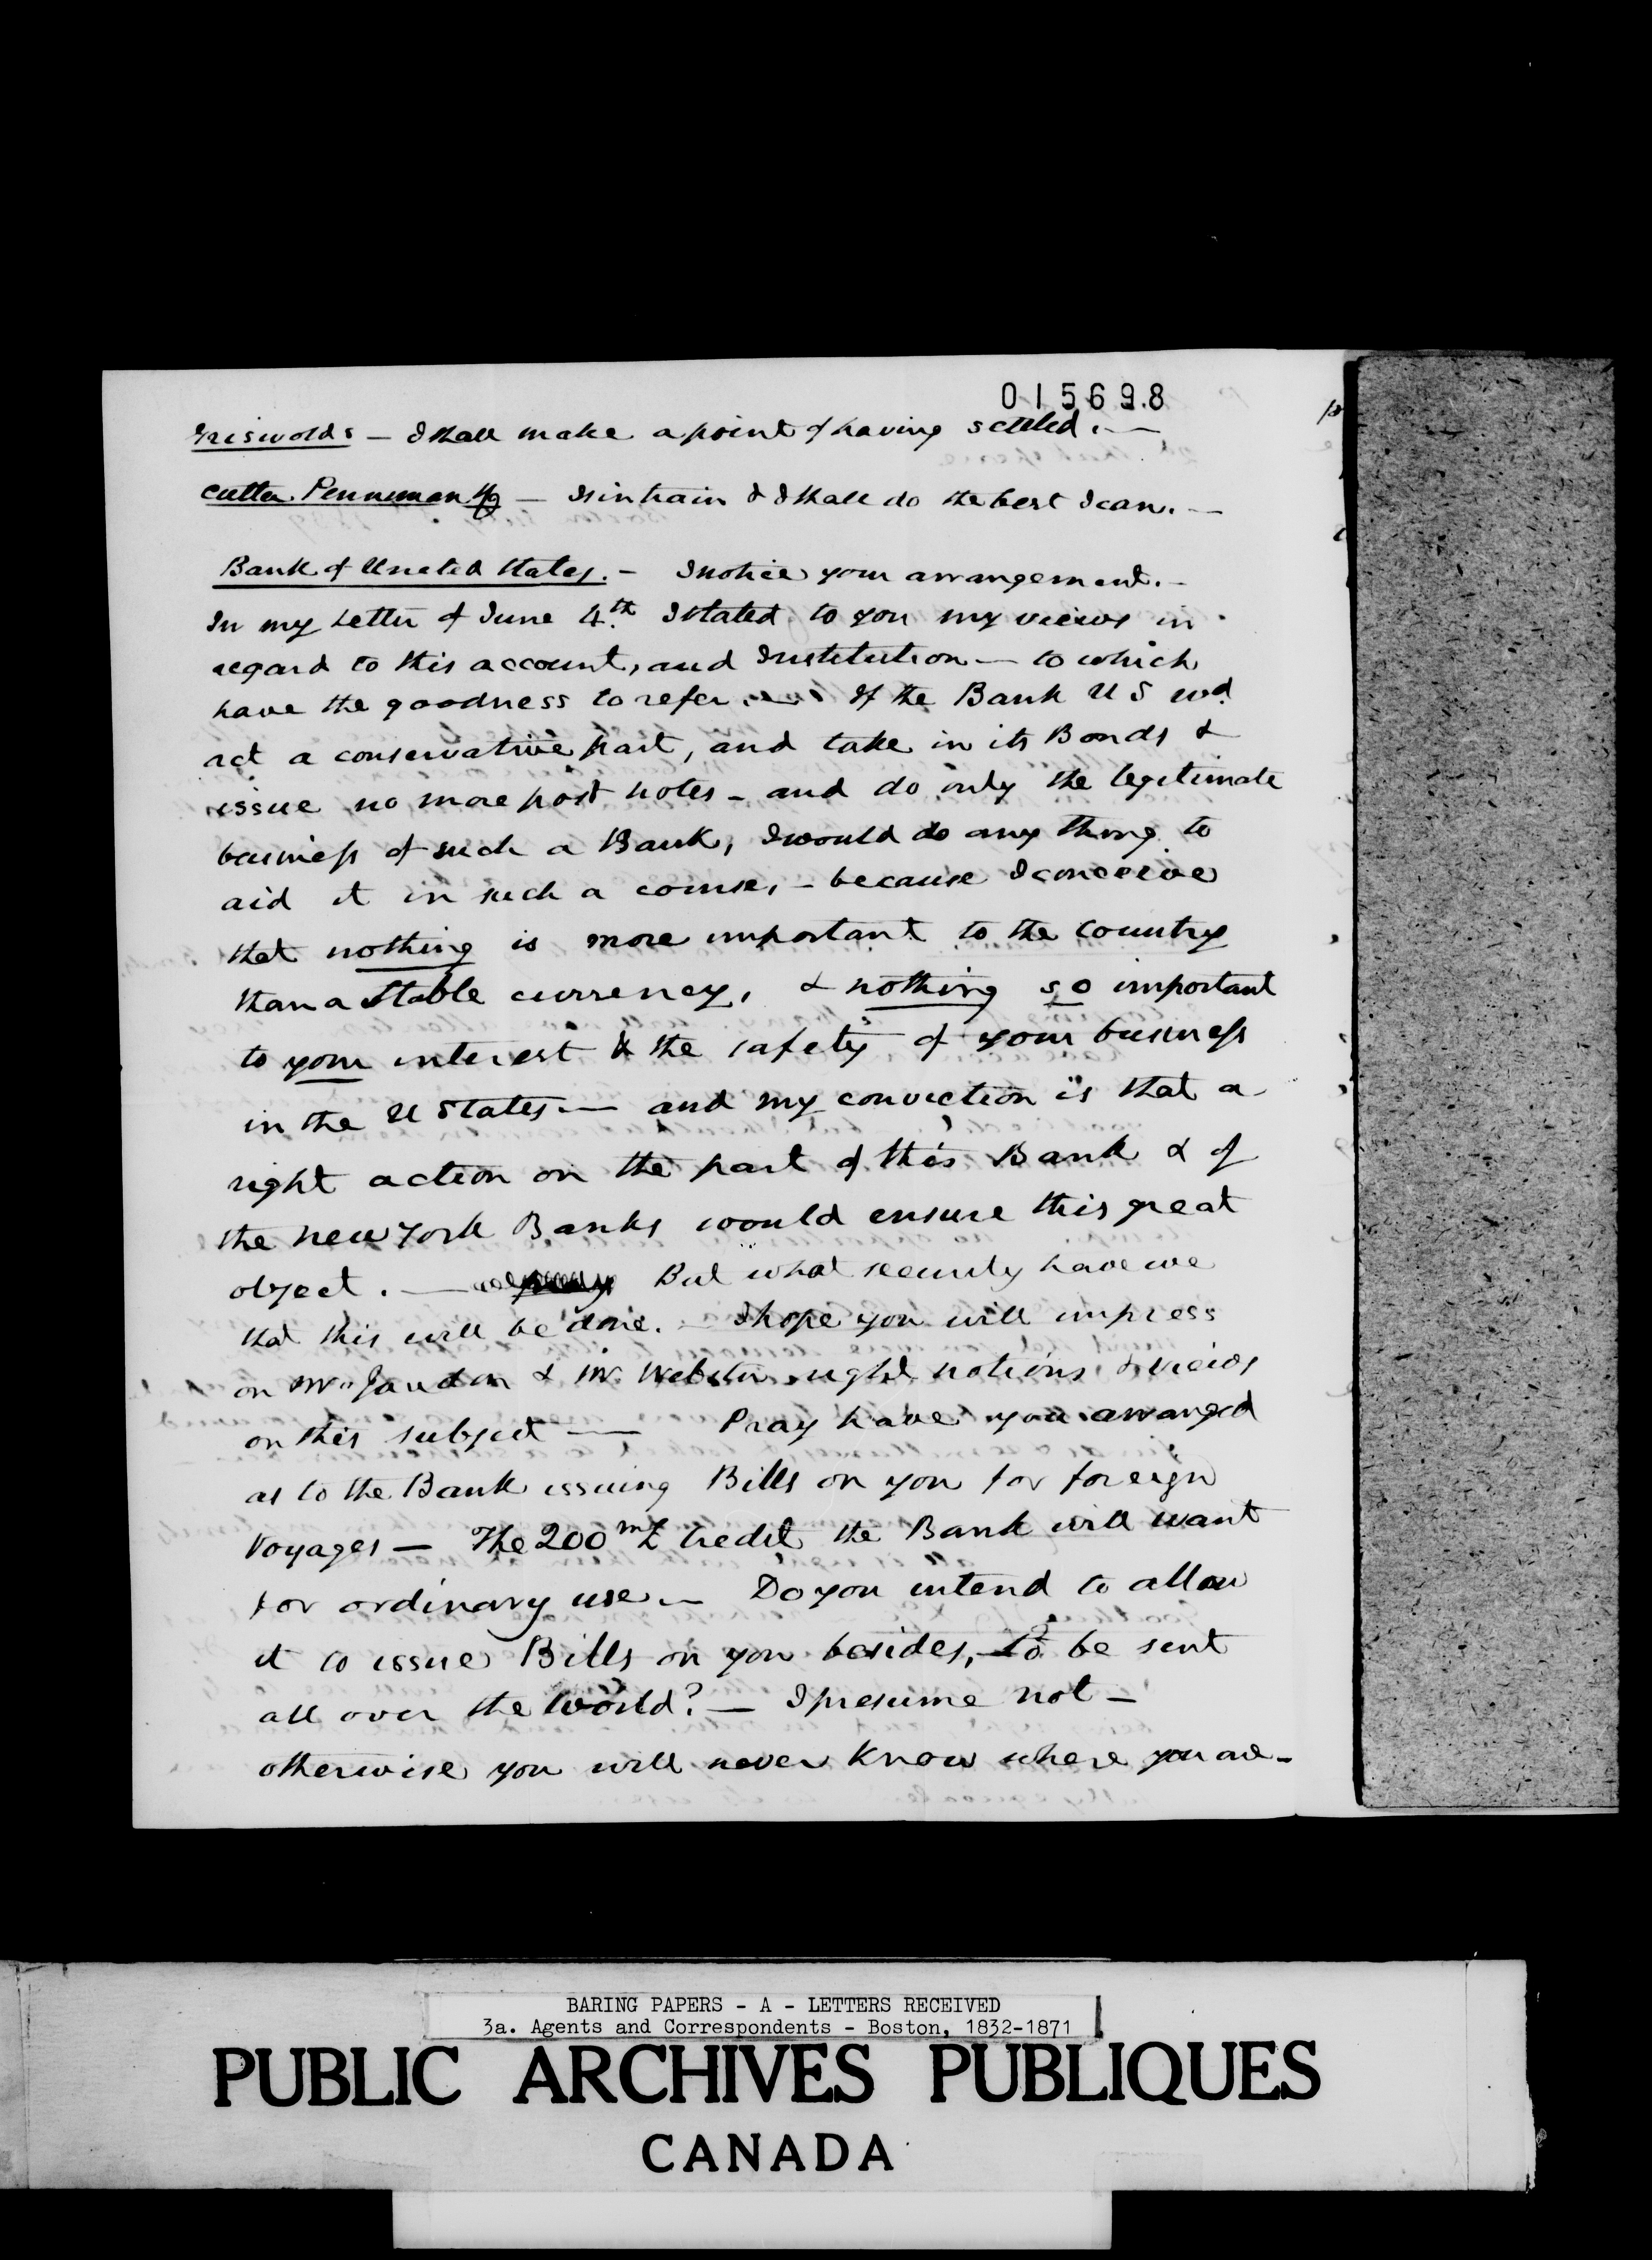 015698
Griswolds — I shall make a point of having settled. —
Cutler Penniman & Co — Is in train & I shall do the best I can. —
Bank of United States. — I notice your arrangement. —
In my letter of June 4th. I stated to you my views in
regard to this account, and Institution — to which
have the goodness to refer. — If the Bank U S wd.
act a conservative part, and take in its Bonds &
issue no more post notes — and do only the legitimate
business of such a Bank, I would do any thing to
aid it in such a course, — because I conceive
that nothing is more important to the Country
than a stable currency, & nothing so important
to your interest & the safety of your business
in the U States. — and my conviction is that a
right action on the part of this Bank & of
the New York Banks would ensure this great
object. — But what security have we
that this will be done. — I hope you will impress
on Mr. Jaudon & Mr. Webster right notions & views
on this subject — Pray have you arranged
as to the Bank issuing Bills on you for foreign
Voyages — The 200 m£ Credit the Bank will want
for ordinary use. — Do you intend to allow
it to issue Bills on you besides, to be sent
all over the World? — I presume not —
otherwise you will never Know where you are —
BARING PAPERS - A - LETTERS RECEIVED
3a. Agents and Correspondents - Boston, 1832-1871
PUBLIC ARCHIVES PUBLIQUES
CANADA